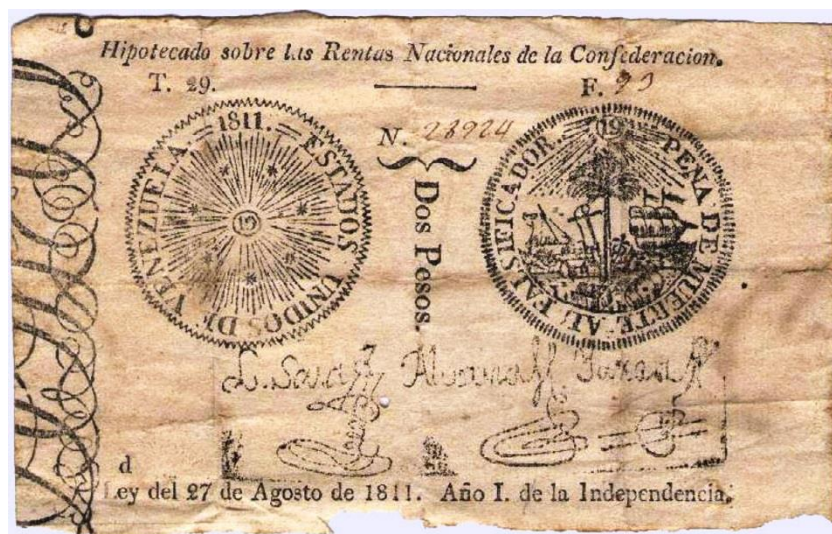 Hipotecado sobre las Rentas Nacionales de la Confederacion.
T. 29.
F. 23
N. 28924
ESTADOS UNIDOS DE VENEZUELA. = 1811. =
19
Dos Pesos.
19
PENA DE MUERTE AL FALSIFICADOR.
d
Ley del 27 de Agosto de 1811. Año I. de la Independencia.